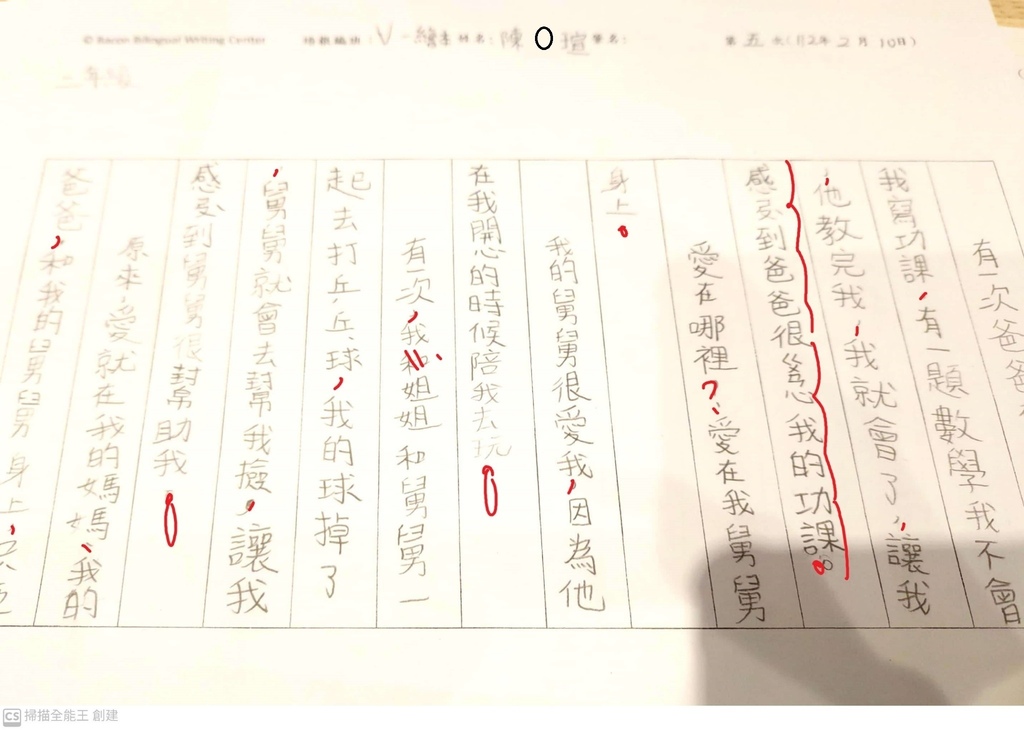 © Bacon Bilingual Writing Center 姓名:陳O瑄 筆名: 第五次(112年2月10日)
二年級
有一次爸爸
我寫功課,有一題數學我不會
,他教完我,我就會了,讓我
感受到爸爸很關心我的功課。
愛在哪裡?愛在我舅舅
身上。
我的舅舅很愛我,因為他
在我開心的時候陪我去玩。
有一次,我和姐姐和舅舅一
起去打乒乓球,我的球掉了
,舅舅就會去幫我撿,讓我
感受到舅舅很幫助我。
原來,愛就在我的媽媽、我的
爸爸,和我的舅舅身上,只